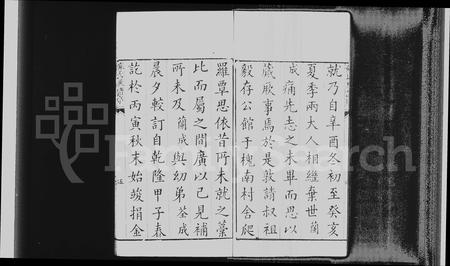 就乃自辛酉冬初至癸亥
夏季兩大人相繼棄世蘭
成痛先志之未畢而思以
蕆厥事焉於是敦請叔祖
毅存公館于槐南村舍爬
羅覃思依昔所未就之藁
比而屬之間廣以己見補
所未及蘭成與幼弟荃成
晨夕較訂自乾隆甲子春
訖於丙寅秋末始竣捐金
五